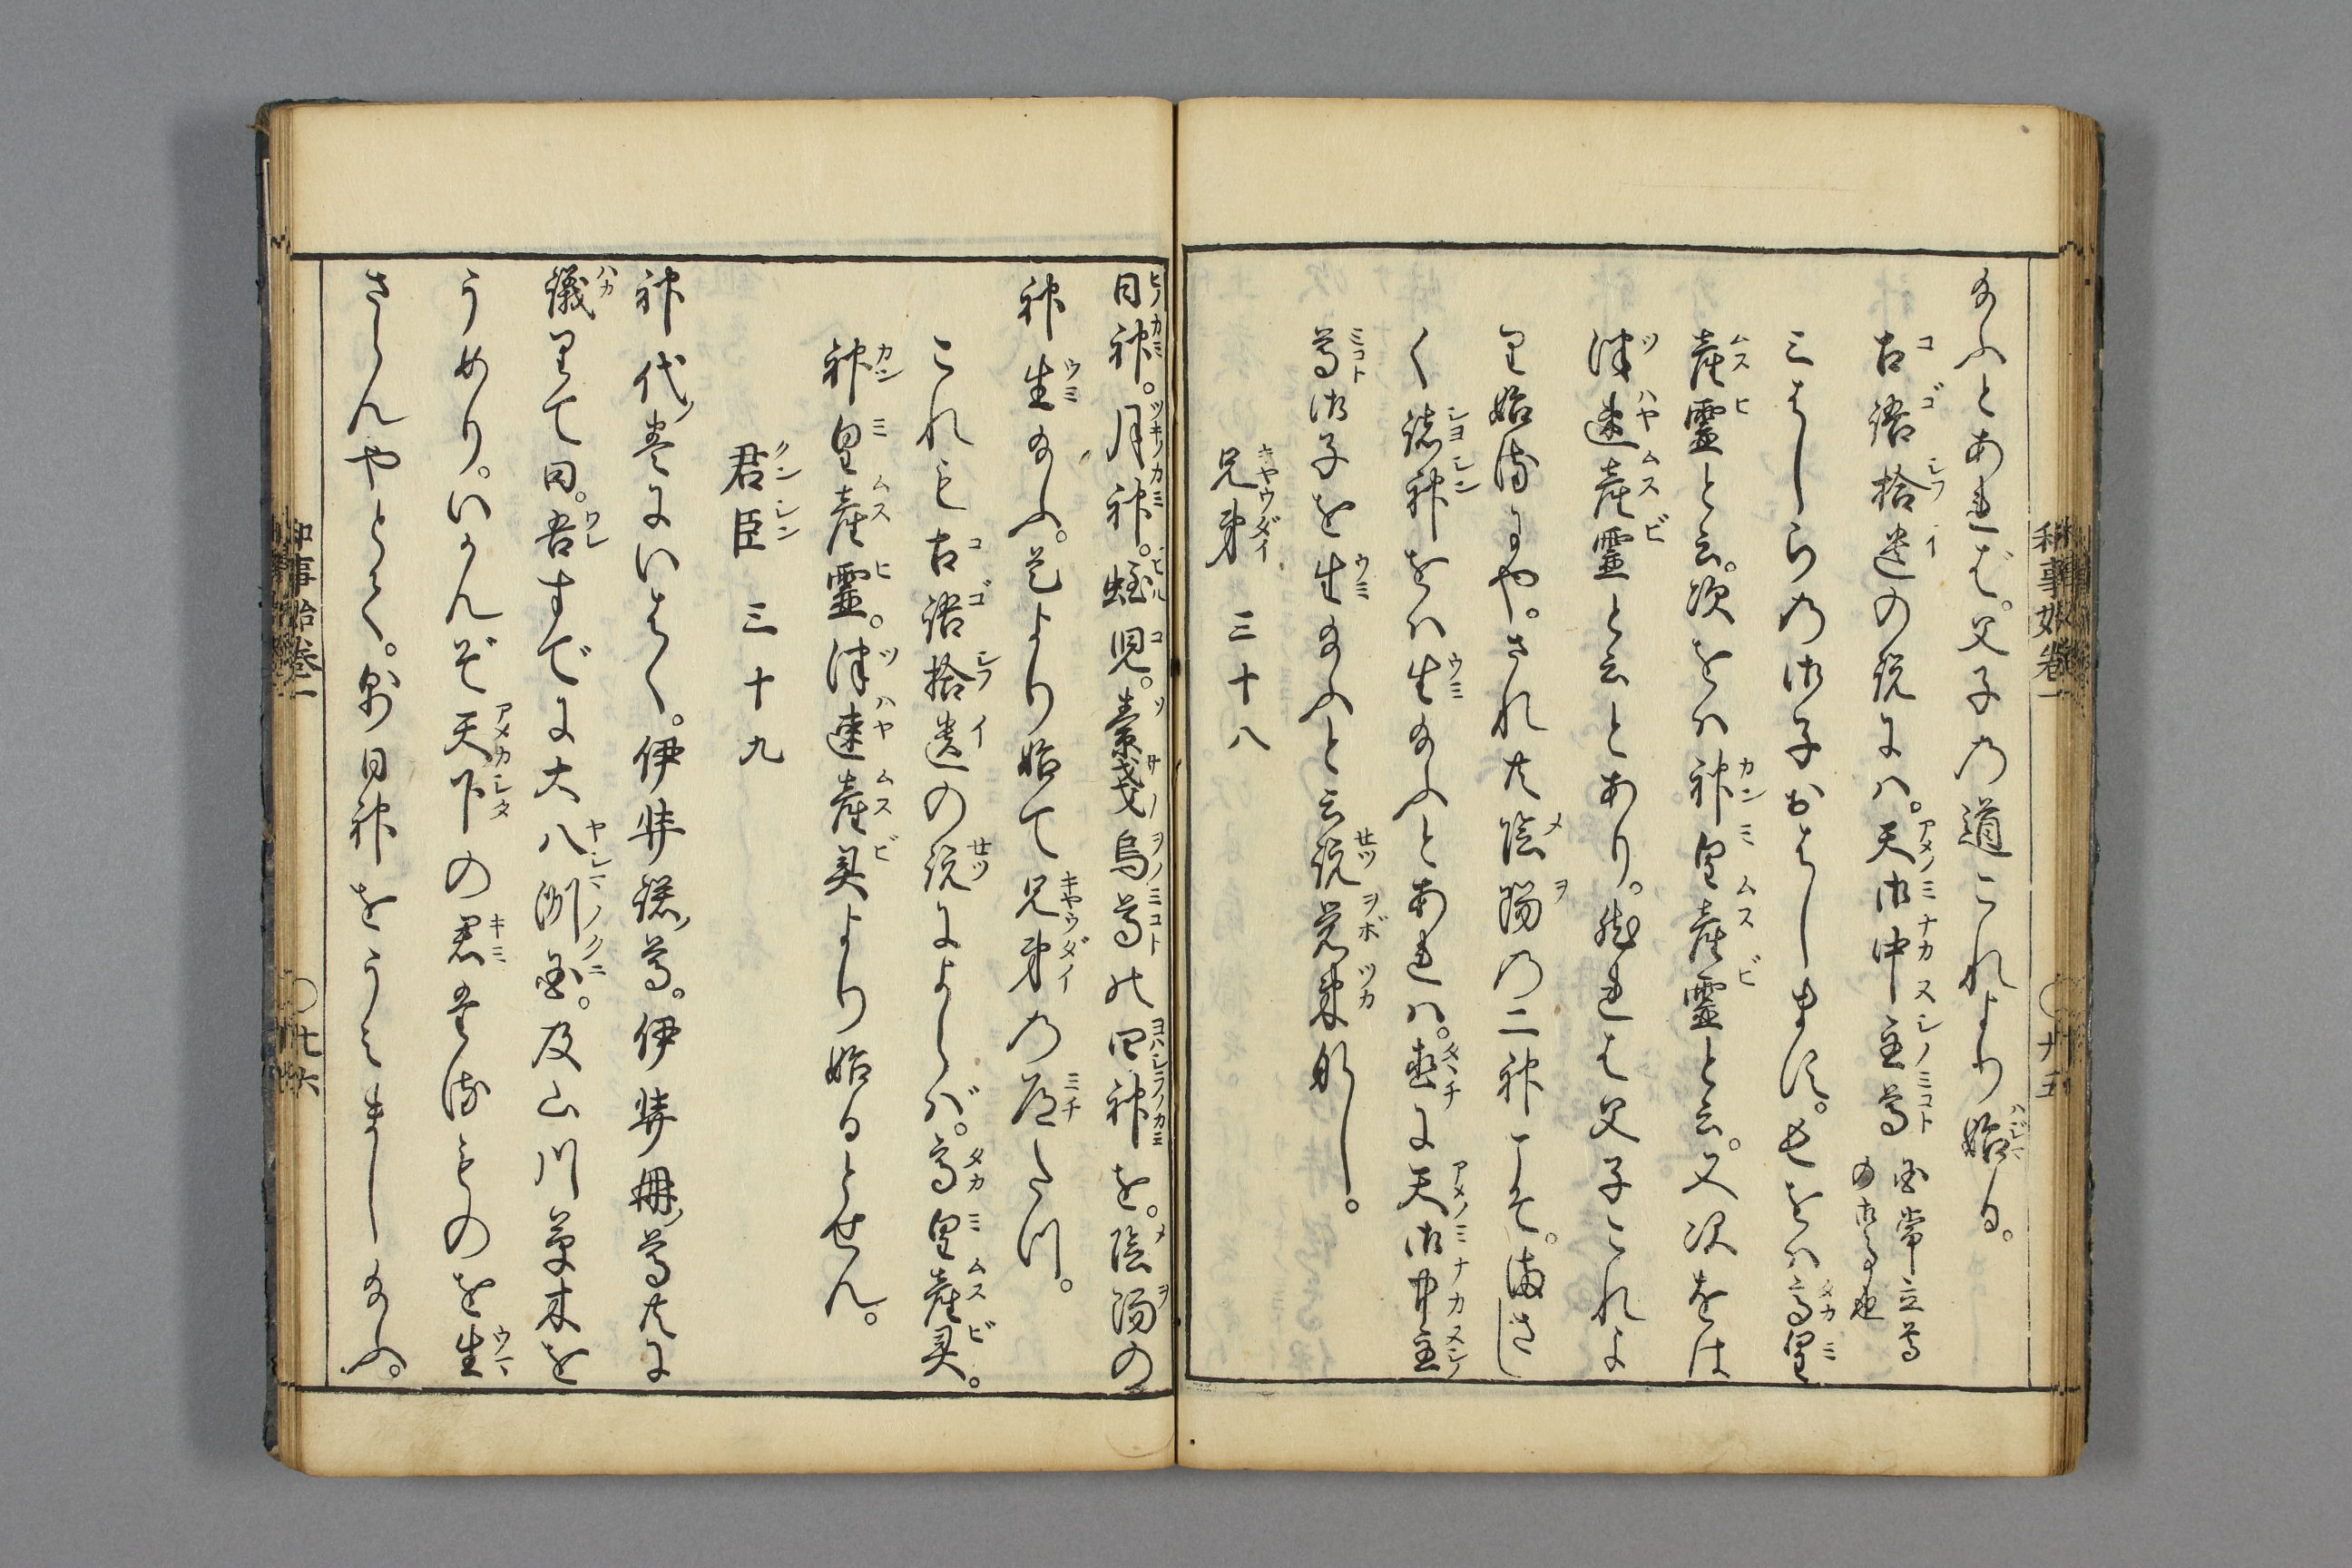 給ふとあれば。父子の道これより始る。
古語拾遺の説には。天御中主尊 国常立尊の御事也
三はしらの御子おはします。长をは高皇
産霊と云。次をは神皇産霊と云。又次をは
津速産霊と云とあり。然れは父子これよ
り始るにや。され共陰陽の二神こそ。まさし
く諸神をは生給ふとあれは。直に天御中主
尊御子を生給ふと云説覚束なし。
兄弟 三十八
日神。月神。蛭児。素戔烏尊の四神を。陰陽の
神生給ふ。是より始て兄弟の道たつ。
これも古語拾遺の説によらば。高皇産霊。
神皇産霊。津速産霊より始るとせん。
君臣 三十九
神代巻にいはく。伊弉諾尊。伊弉冊尊共に
議りて曰。吾すでに大八洲国。及山川草木を
うめり。いかんぞ天下の君たるものを生
さらんやとて。則日神をうみまし給ふ。
和事始巻一 〇廿五
和事始巻一 〇廿六